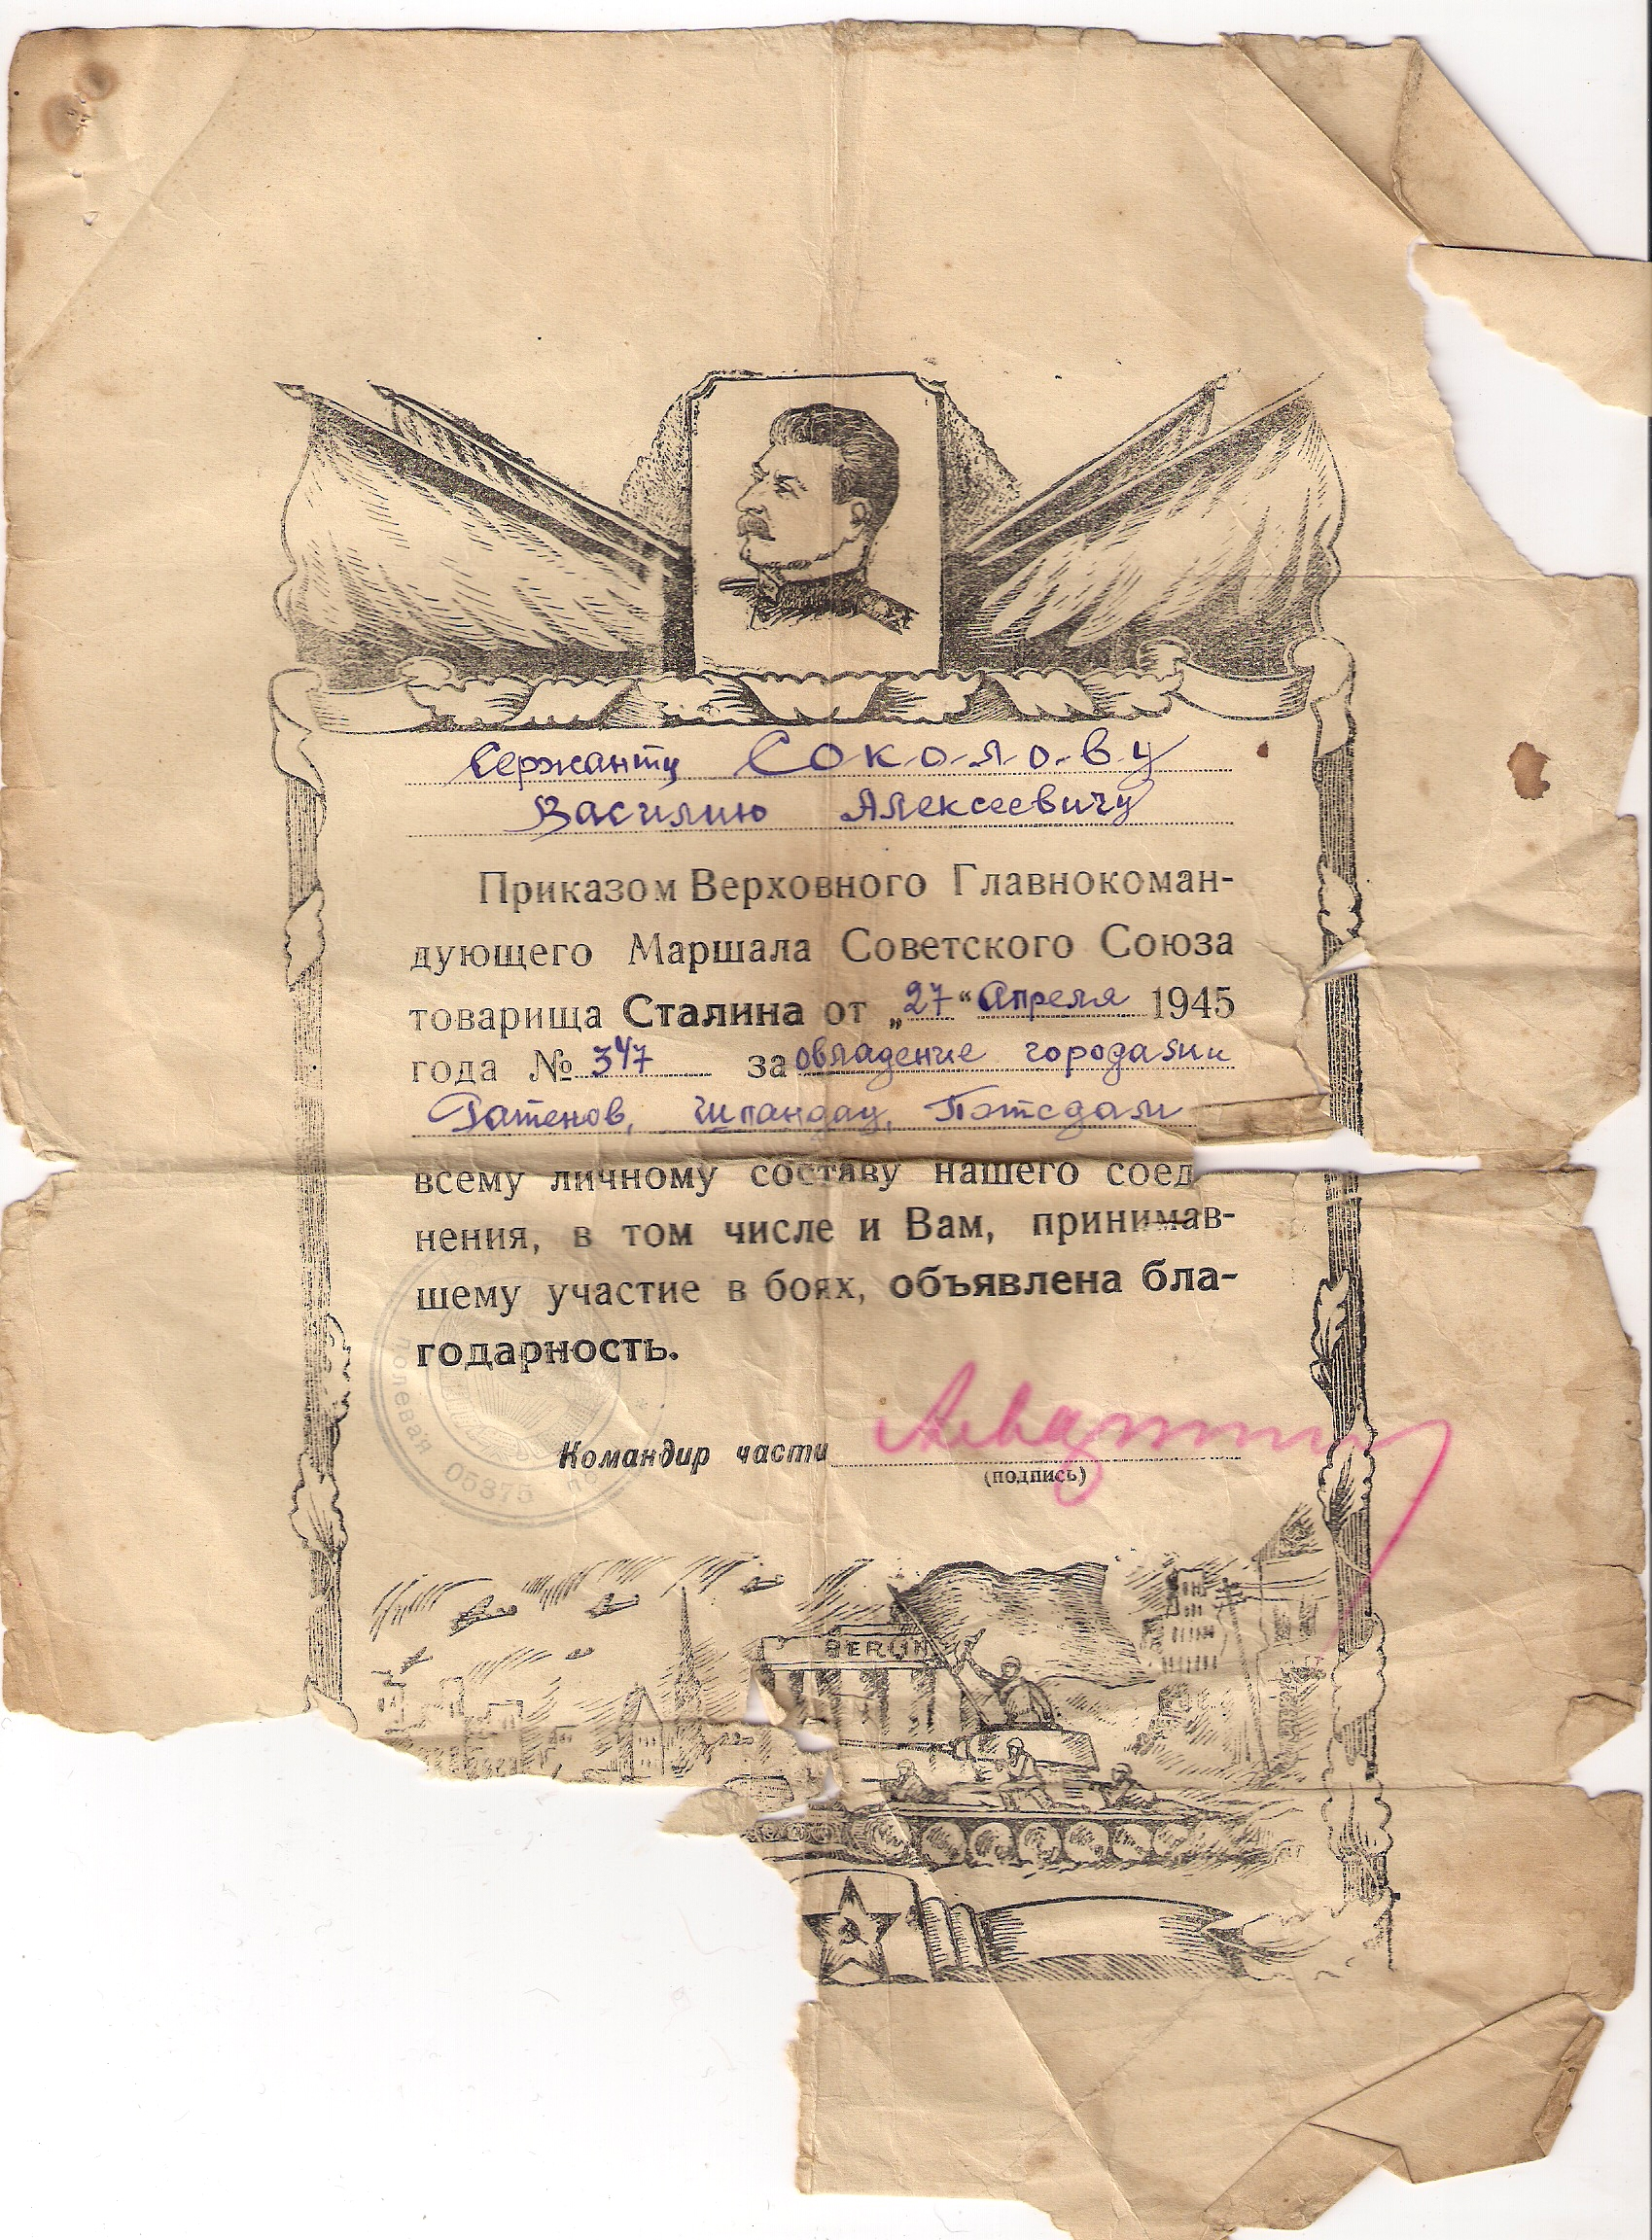 Сержанту Соколову
Василию Алексеевичу
Приказом Верховного Главнокоман-
дующего Маршала Советского Союза
товарища Сталина от „27“ Апреля 1945
года № 347 за овладение городами
Ратенов, Шпандау, Потсдам
всему личному составу нашего соед
нения, в том числе и Вам, принимав-
шему участие в боях, объявлена бла-
годарность.
Командир части
(подпись)
полевая
05375
BERLIN